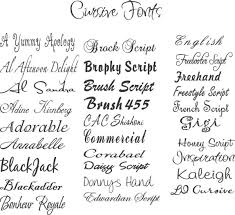 Cursive Fonts
A Yummy Apology
Al Afternoon Delight
Al Sandra
Adine Kirnberg
Adorable
Annabelle
BlackJack
Blackadder
Bonheur Royale
Brock Script
Brophy Script
Brush Script
Brush 455
C.A.C. Shishoni
Commercial
Corabael
Daisy Script
Donnys Hand
Edwardian
English
Fradorfor Script
Freehand
Freestyle Script
French Script
Gigi
Honey Script
Inspiration
Kaleigh
LD Cursive